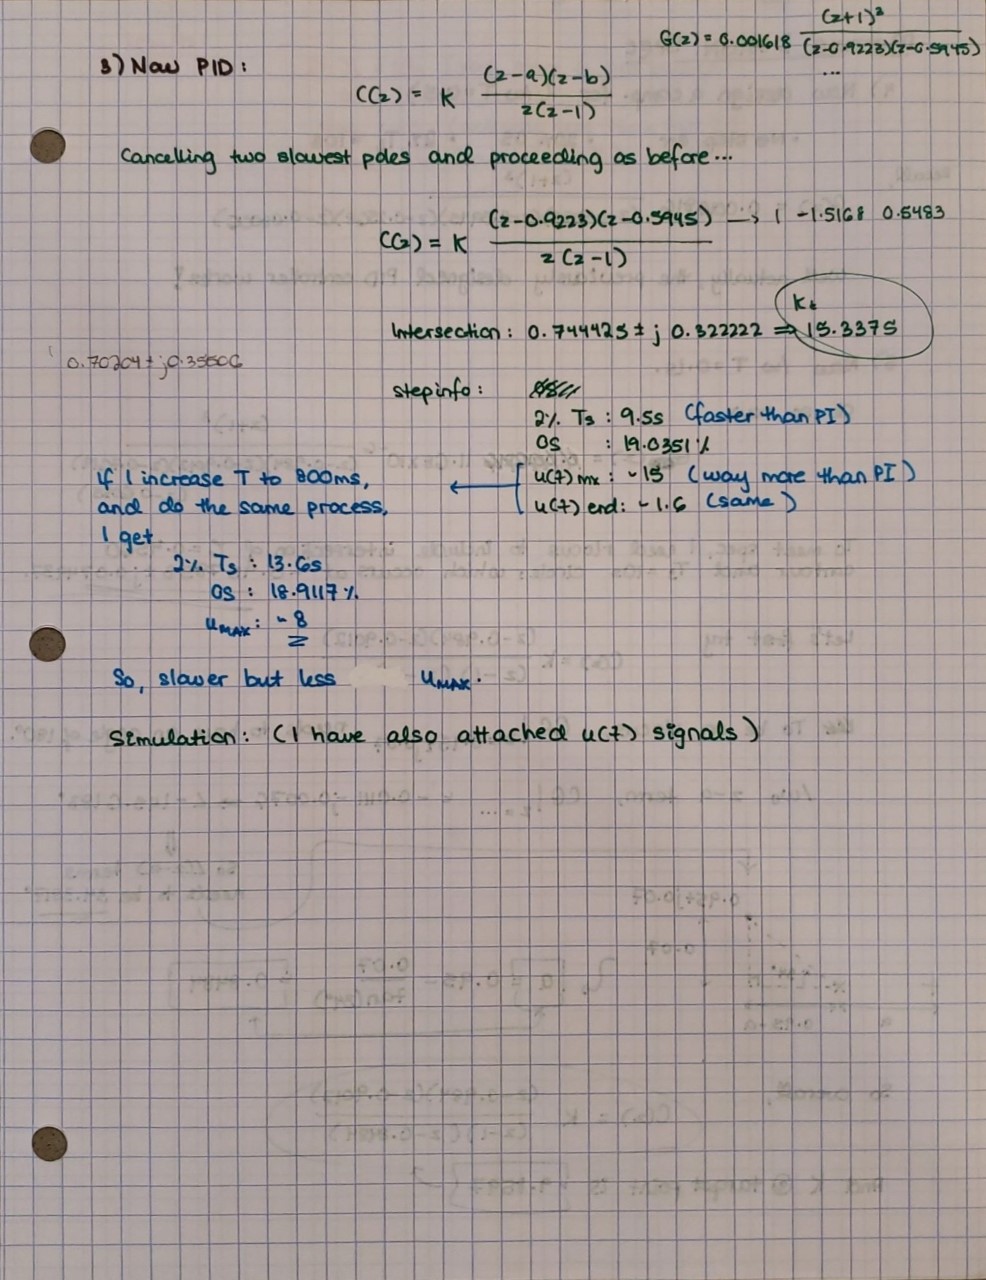 G(z) = 0.001618 (z+1)² / (z-0.9223)(z-0.5945)
...
3) Now PID:
C(z) = K (z-a)(z-b) / z(z-1)
Cancelling two slowest poles and proceeding as before...
C(z) = K (z-0.9223)(z-0.5945) / z(z-1) → 1 -1.5168 0.5483
Kt
Intersection: 0.744425 ± j 0.322222 ⇒ 15.3375
0.70204 ± j0.35506
stepinfo:
2% Ts : 9.5s (faster than PI)
OS : 19.0351%
u(t) mx : ~15 (way more than PI)
u(t) end: ~1.6 (same)
If I increase T to 800ms,
and do the same process,
I get
2% Ts : 13.6s
OS : 18.9117%
uMAX: ~8
So, slower but less uMAX.
Simulation: (I have also attached u(t) signals)